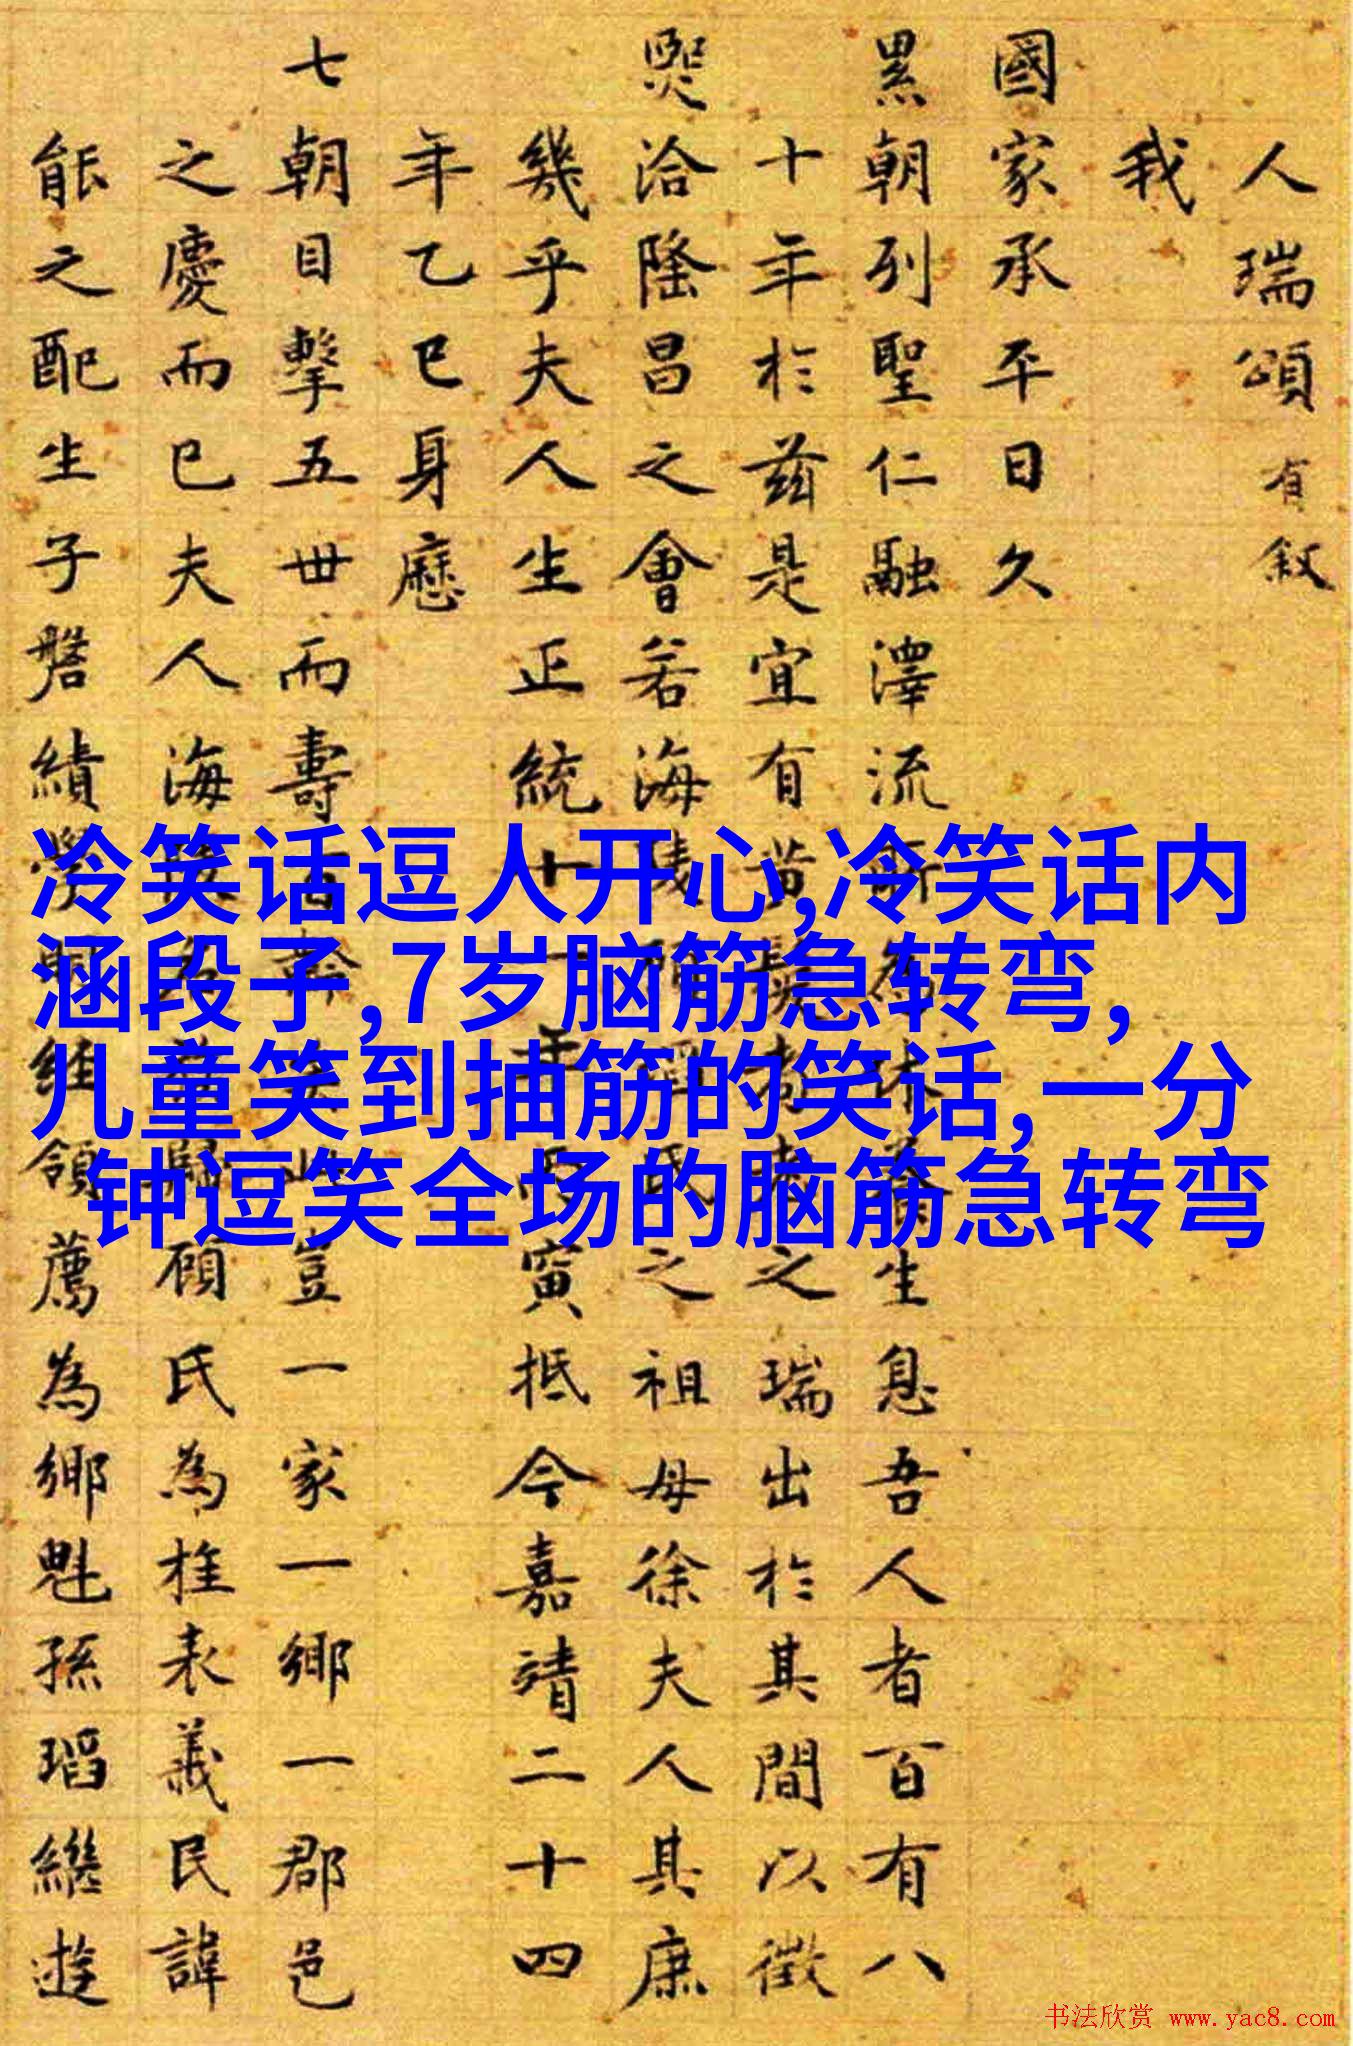 人瑞頌 有叙
我
國家承平日久
累朝列聖仁融澤流休養生息吾人者百有八
十年於兹是宜有黄髮耇老之瑞出於其間以徵
熙洽隆昌之會若海陵氏之祖母徐夫人其庶
幾乎夫人生正統十一年丙寅抵今嘉靖二十四
年乙巳身歷
七朝目擊五世而壽百豈一家一鄉一郡邑
之慶而已夫人海陵歸顧氏為旌表義民諱
能之配生子磐績學經領薦為鄉魁孫瑫繼遊
冷笑话逗人开心,冷笑话内
涵段子,7岁脑筋急转弯,
儿童笑到抽筋的笑话,一分
钟逗笑全场的脑筋急转弯
书法欣赏 www.yac8.com